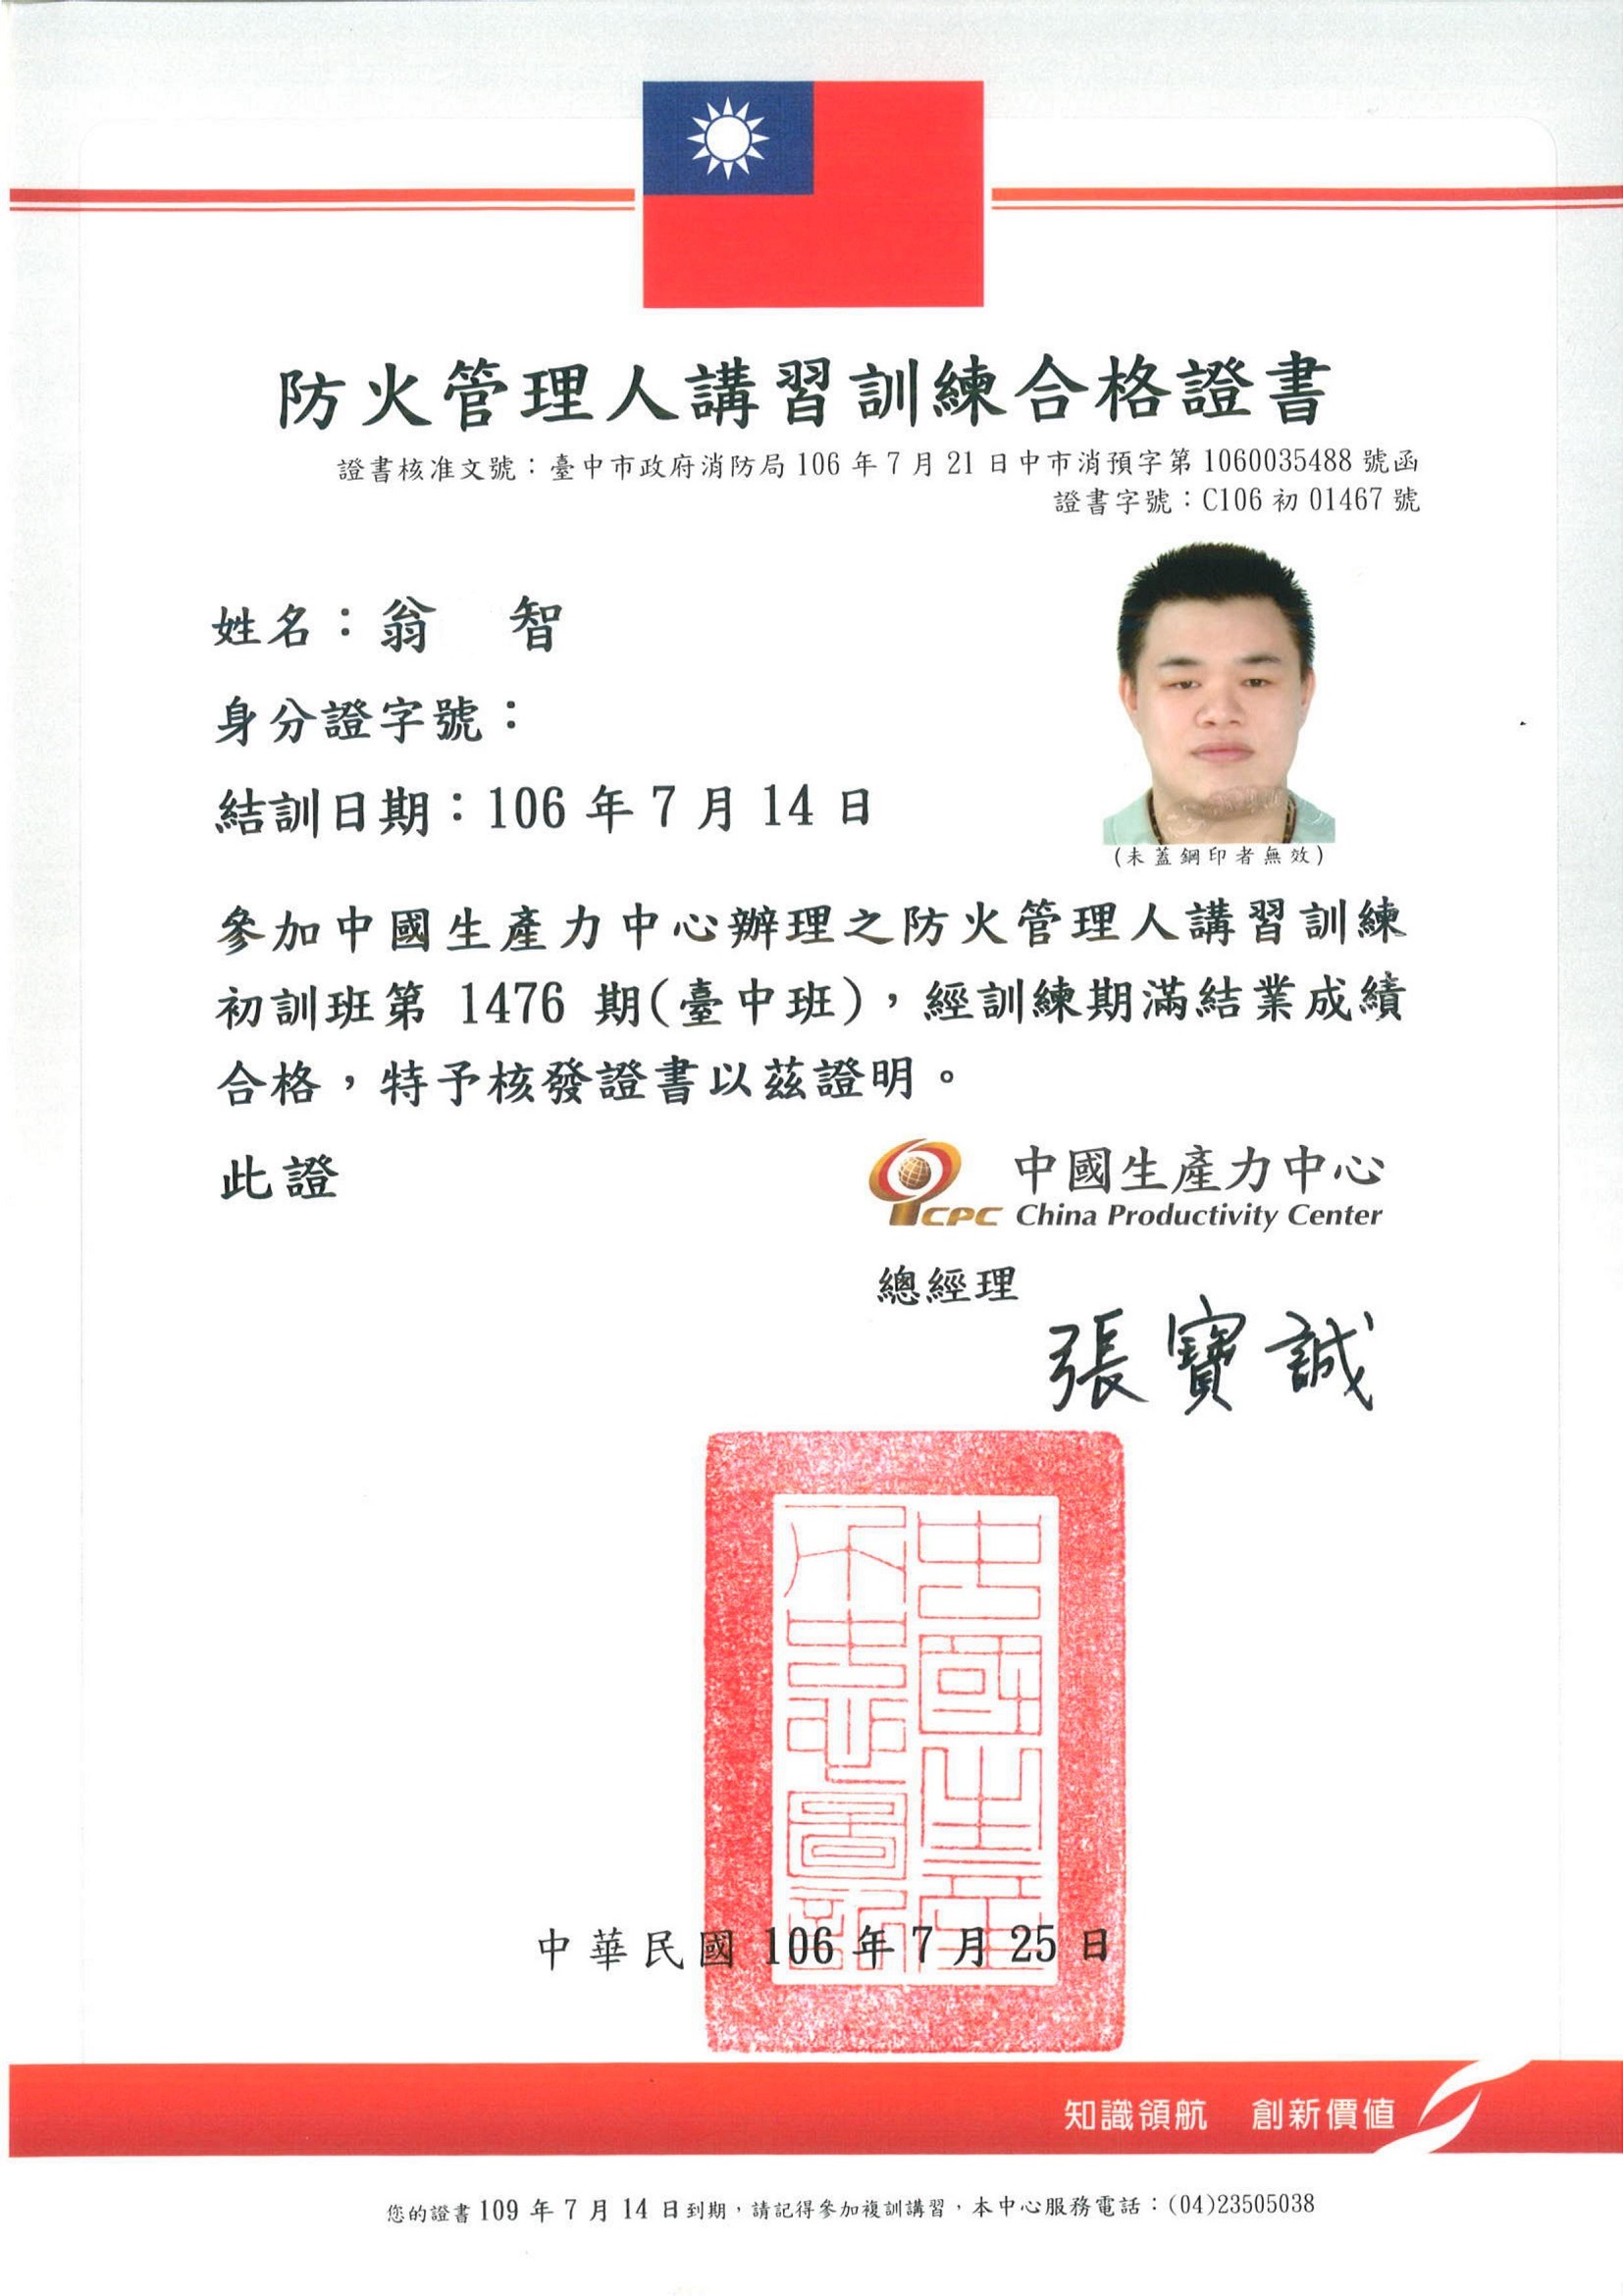 防火管理人講習訓練合格證書
證書核准文號：臺中市政府消防局 106 年 7 月 21 日中市消預字第 1060035488 號函
證書字號：C106 初 01467 號
姓名：翁　智
身分證字號：
結訓日期：106 年 7 月 14 日
(未蓋鋼印者無效)
參加中國生產力中心辦理之防火管理人講習訓練
初訓班第 1476 期(臺中班)，經訓練期滿結業成績
合格，特予核發證書以茲證明。
此證
CPC 中國生產力中心
China Productivity Center
總經理
張寶誠
中華民國 106 年 7 月 25 日
知識領航　創新價值
您的證書 109 年 7 月 14 日到期，請記得參加複訓講習，本中心服務電話：(04)23505038